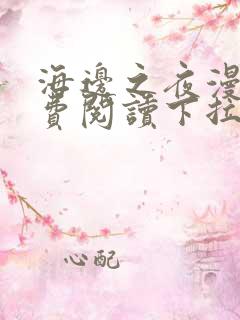 海邊之夜漫
費閱讀下拉
心配